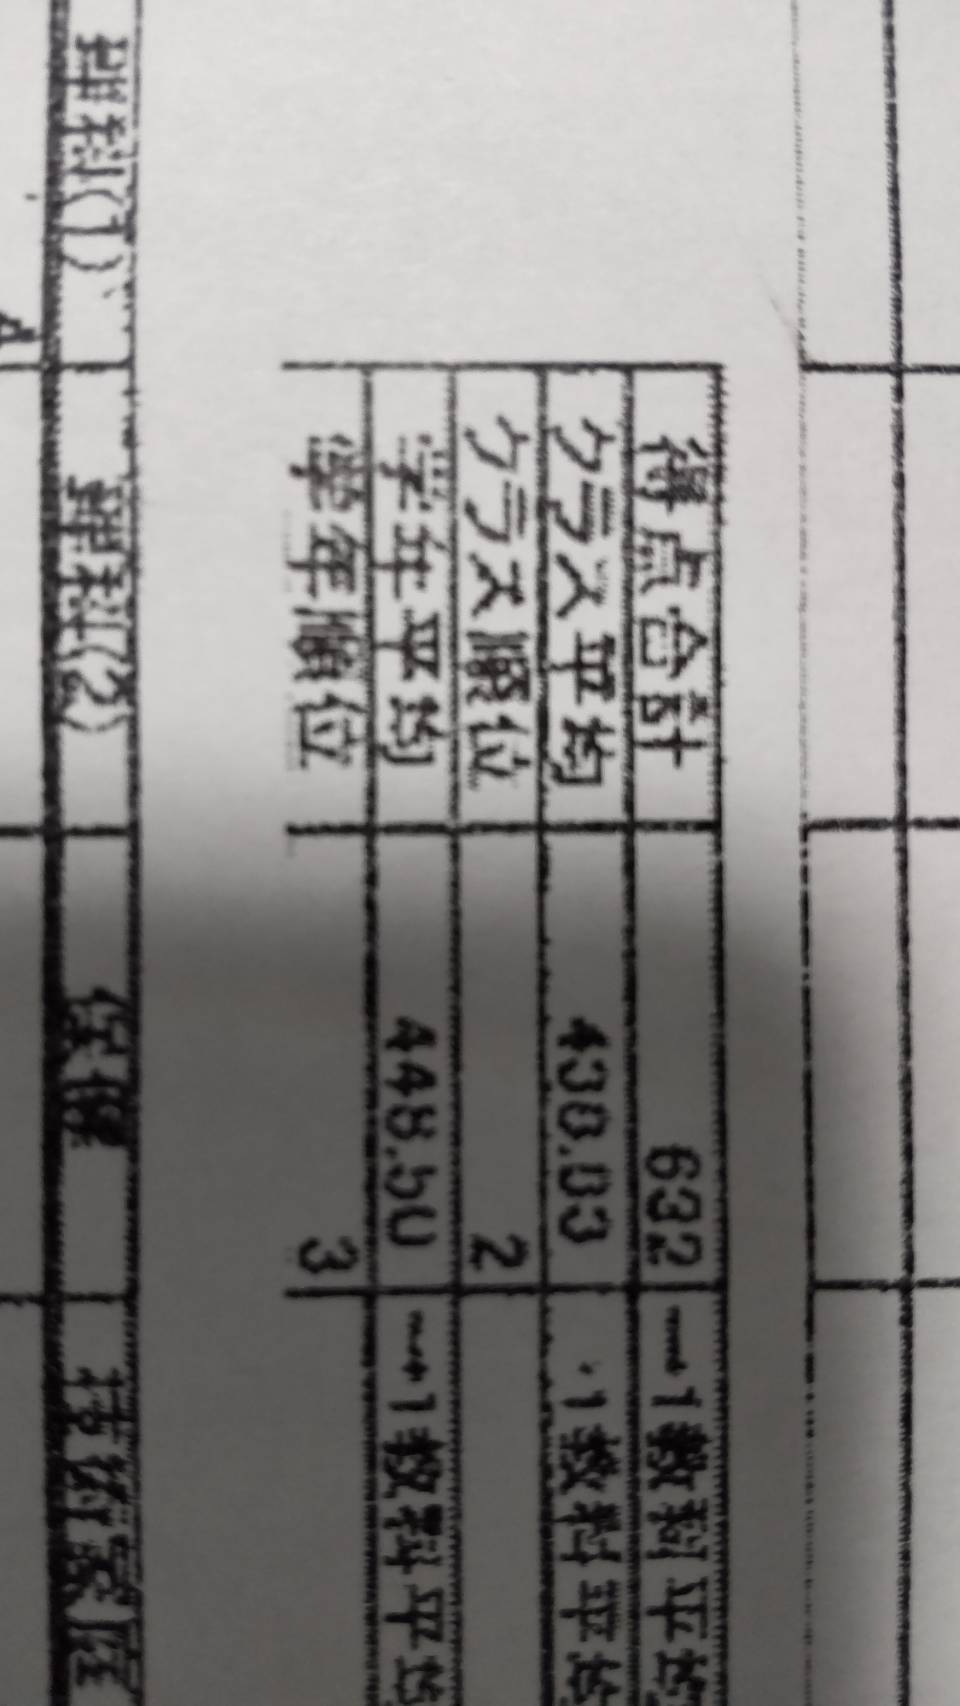 理科(1) 理科(2) 保健 技術家庭
得点合計 632 →1教科平均
クラス平均 430.03 →1教科平均
クラス順位 2
学年平均 448.50 →1教科平均
学年順位 3